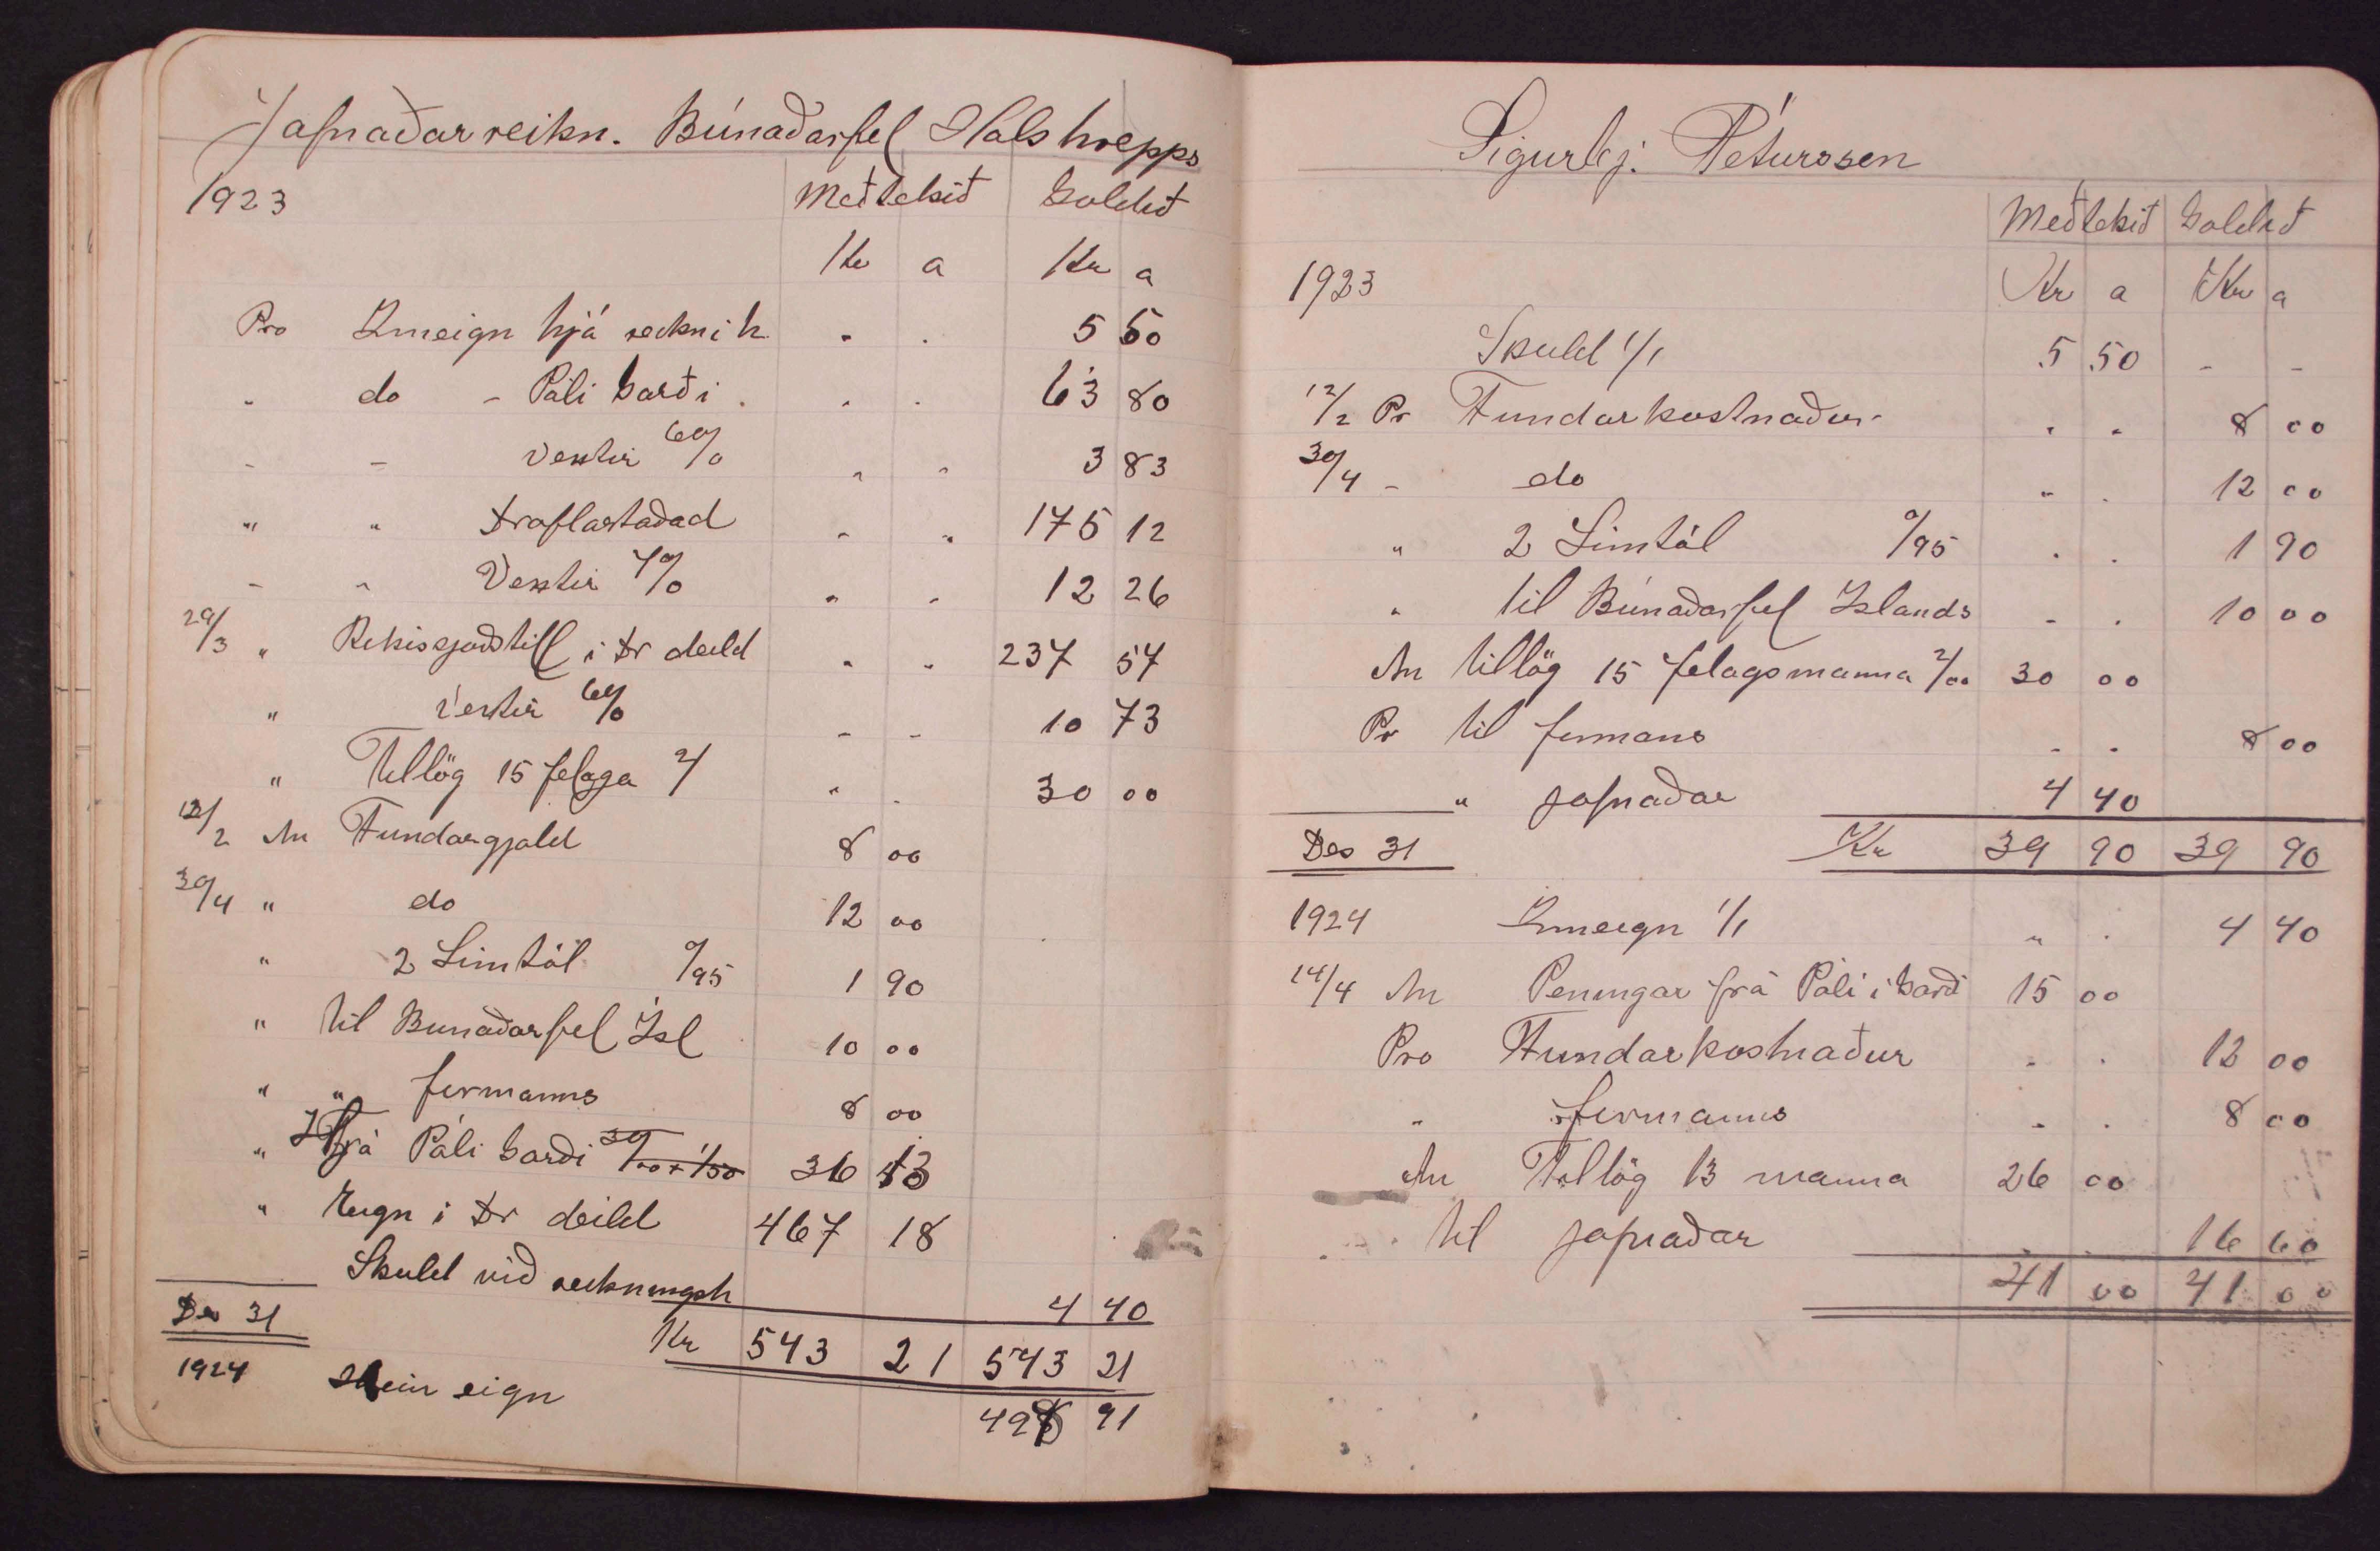 Jafnaðarreikn. Búnaðarfel Hals hrepps
1923 Meðtekið Goldið
Kr a Kr a
Pro Inneign hjá reikni h. " " 5 50
" do - Páli Garði. " " 63 80
- - Vextir 6% " " 3 83
" " Draflastaðad " " 175 12
- " Vextir 7% " " 12 26
29/3 " í Dr deild " " 237 57
" Vextir 6% - - 10 73
" Tillög 15 felaga 2/ " " 30 00
12/2 An Fundargjald 8 00
30/4 " do 12 00
" 2 Limtól 0/95 1 90
" til Bunaðarfel Ísl 10 00
" " fermanns 8 00
" Páli Garði 36 13
" Eign i Dr deild 467 18
Skuld við reikningsh 4 40
Des 31 Kr 543 21 543 21
1924 eign 498 91
Sigurbj. Péturssen
Meðtekið Goldið
1923 Kr a Kr a
Skuld 1/1 5 50 - -
12/2 Pr Fundarkostnaður " " 8 00
30/4 - do " " 12 00
" 2 Limtól 0/95 " " 1 90
" til Búnaðarfel Islands - " 10 00
An tillög 15 felagsmanna 2/00 30 00
Pr til fermans - - 8 00
" jafnaðar 4 40
Des 31 Kr 39 90 39 90
1924 Inneign 1/1 " " 4 40
14/4 An Peningar frá Páli i Garði 15 00
Pro Fundarkostnaður - " 12 00
" fermanns - " 8 00
An Tillög 13 manna 26 00
til jafnaðar 16 60
41 00 41 00